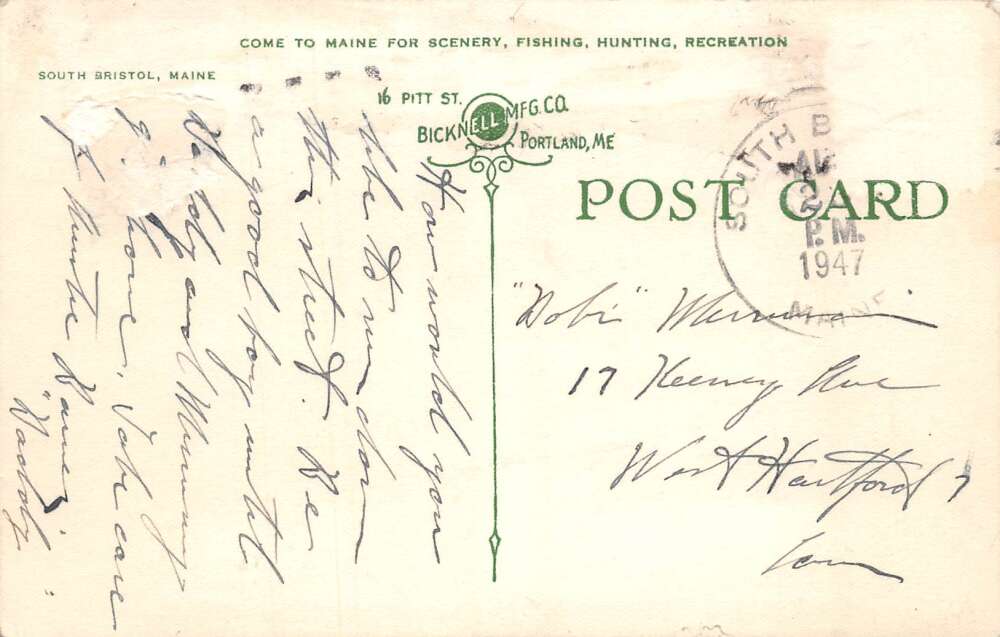 COME TO MAINE FOR SCENERY, FISHING, HUNTING, RECREATION
SOUTH BRISTOL, MAINE
16 PITT ST.
BICKNELL MFG. CO.
PORTLAND, ME
POST CARD
SOUTH B
AU
2
P.M.
1947
MAINE
How would you
like to run down
this street. Be
a good boy until
Daddy and Mummy
home. Take care
of
"Daddy"
"Dobi" Merriman
17 Keeney Ave
West Hartford 7
Conn